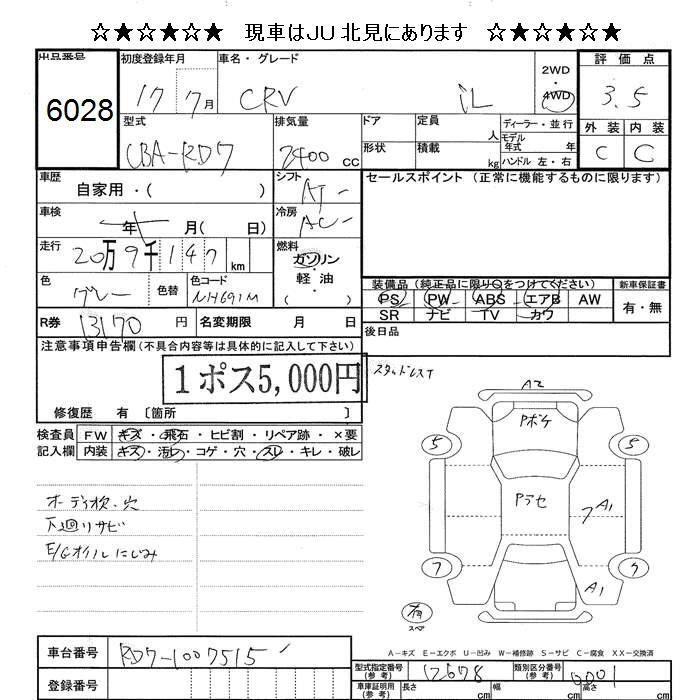 ☆★☆★☆★ 現車はJU北見にあります ☆★☆★☆★
出品番号 6028
初度登録年月 17 7月
車名・グレード CRV iL
2WD 4WD
評価点 3.5
外装 内装
C C
型式 CBA-RD7
排気量 2400 cc
ドア 定員 人
形状 積載 kg
ディーラー・並行
モデル年式 年
ハンドル 左・右
車歴 自家用・( )
シフト AT
セールスポイント (正常に機能するものに限ります)
車検 年 月( 日)
冷房 AC
走行 20万9千147 km
燃料 ガソリン・軽油・( )
色 グレー 色替 色コード NH691M
装備品 (純正品に限り○をつけてください) 新車保証書
PS PW ABS エアB AW 有・無
SR ナビ TV カワ
R券 13170 円 名変期限 月 日
後日品
注意事項申告欄 (不具合内容等は具体的に記入して下さい)
1ポス5,000円
スタッドレスT
修復歴 有 〔箇所 〕
検査員 FW キズ・飛石・ヒビ割・リペア跡・×要
記入欄 内装 キズ・汚れ・コゲ・穴・スレ・キレ・破レ
A2
Pボケ
5 5
Pラセ
7 A1
7 7
A1
有
スペア
下廻りサビ
E/Gオイルにじみ
A-キズ E-エクボ U-凹み W-補修跡 S-サビ C-腐食 XX-交換済
車台番号 RD7-1007515
登録番号
型式指定番号 (参考) 12678 類別区分番号 (参考) 0001
車庫証明用 (参考) 長さ cm 幅 cm 高さ cm